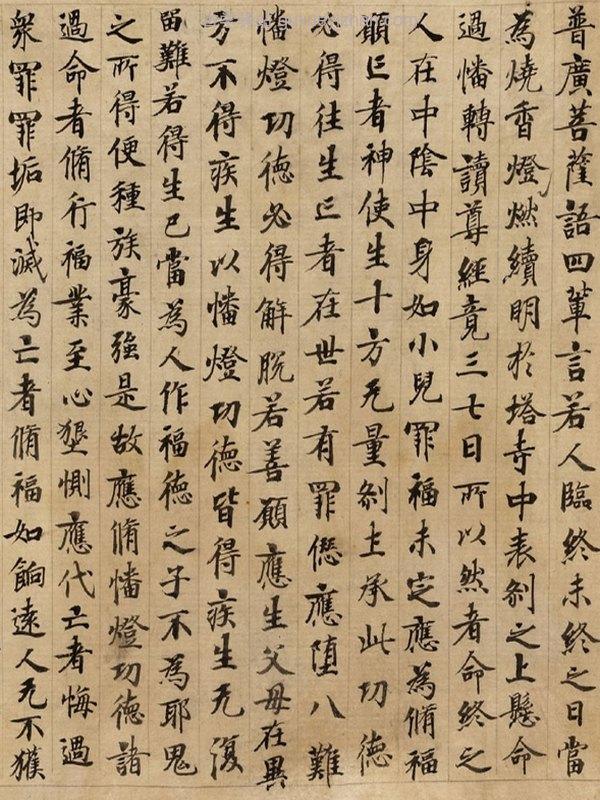 普廣菩薩語四輩言若人臨終未終之日當
為燒香燈燃續明於塔寺中表刹之上懸命
過幡轉讀尊經竟三七日所以然者命終之
人在中陰中身如小兒罪福未定應為脩福
願亡者神使生十方无量刹土承此功德
必得往生亡者在世若有罪𠍴應墮八難
幡燈功德必得解脫若善願應生父母在異
方不得疾生以幡燈功德皆得疾生无復
留難若得生已當為人作福德之子不為耶鬼
之所得便種族豪強是故應脩幡燈功德諸
過命者脩行福業至心墾惻應代亡者悔過
衆罪罪垢即滅為亡者脩福如餉遠人无不獲